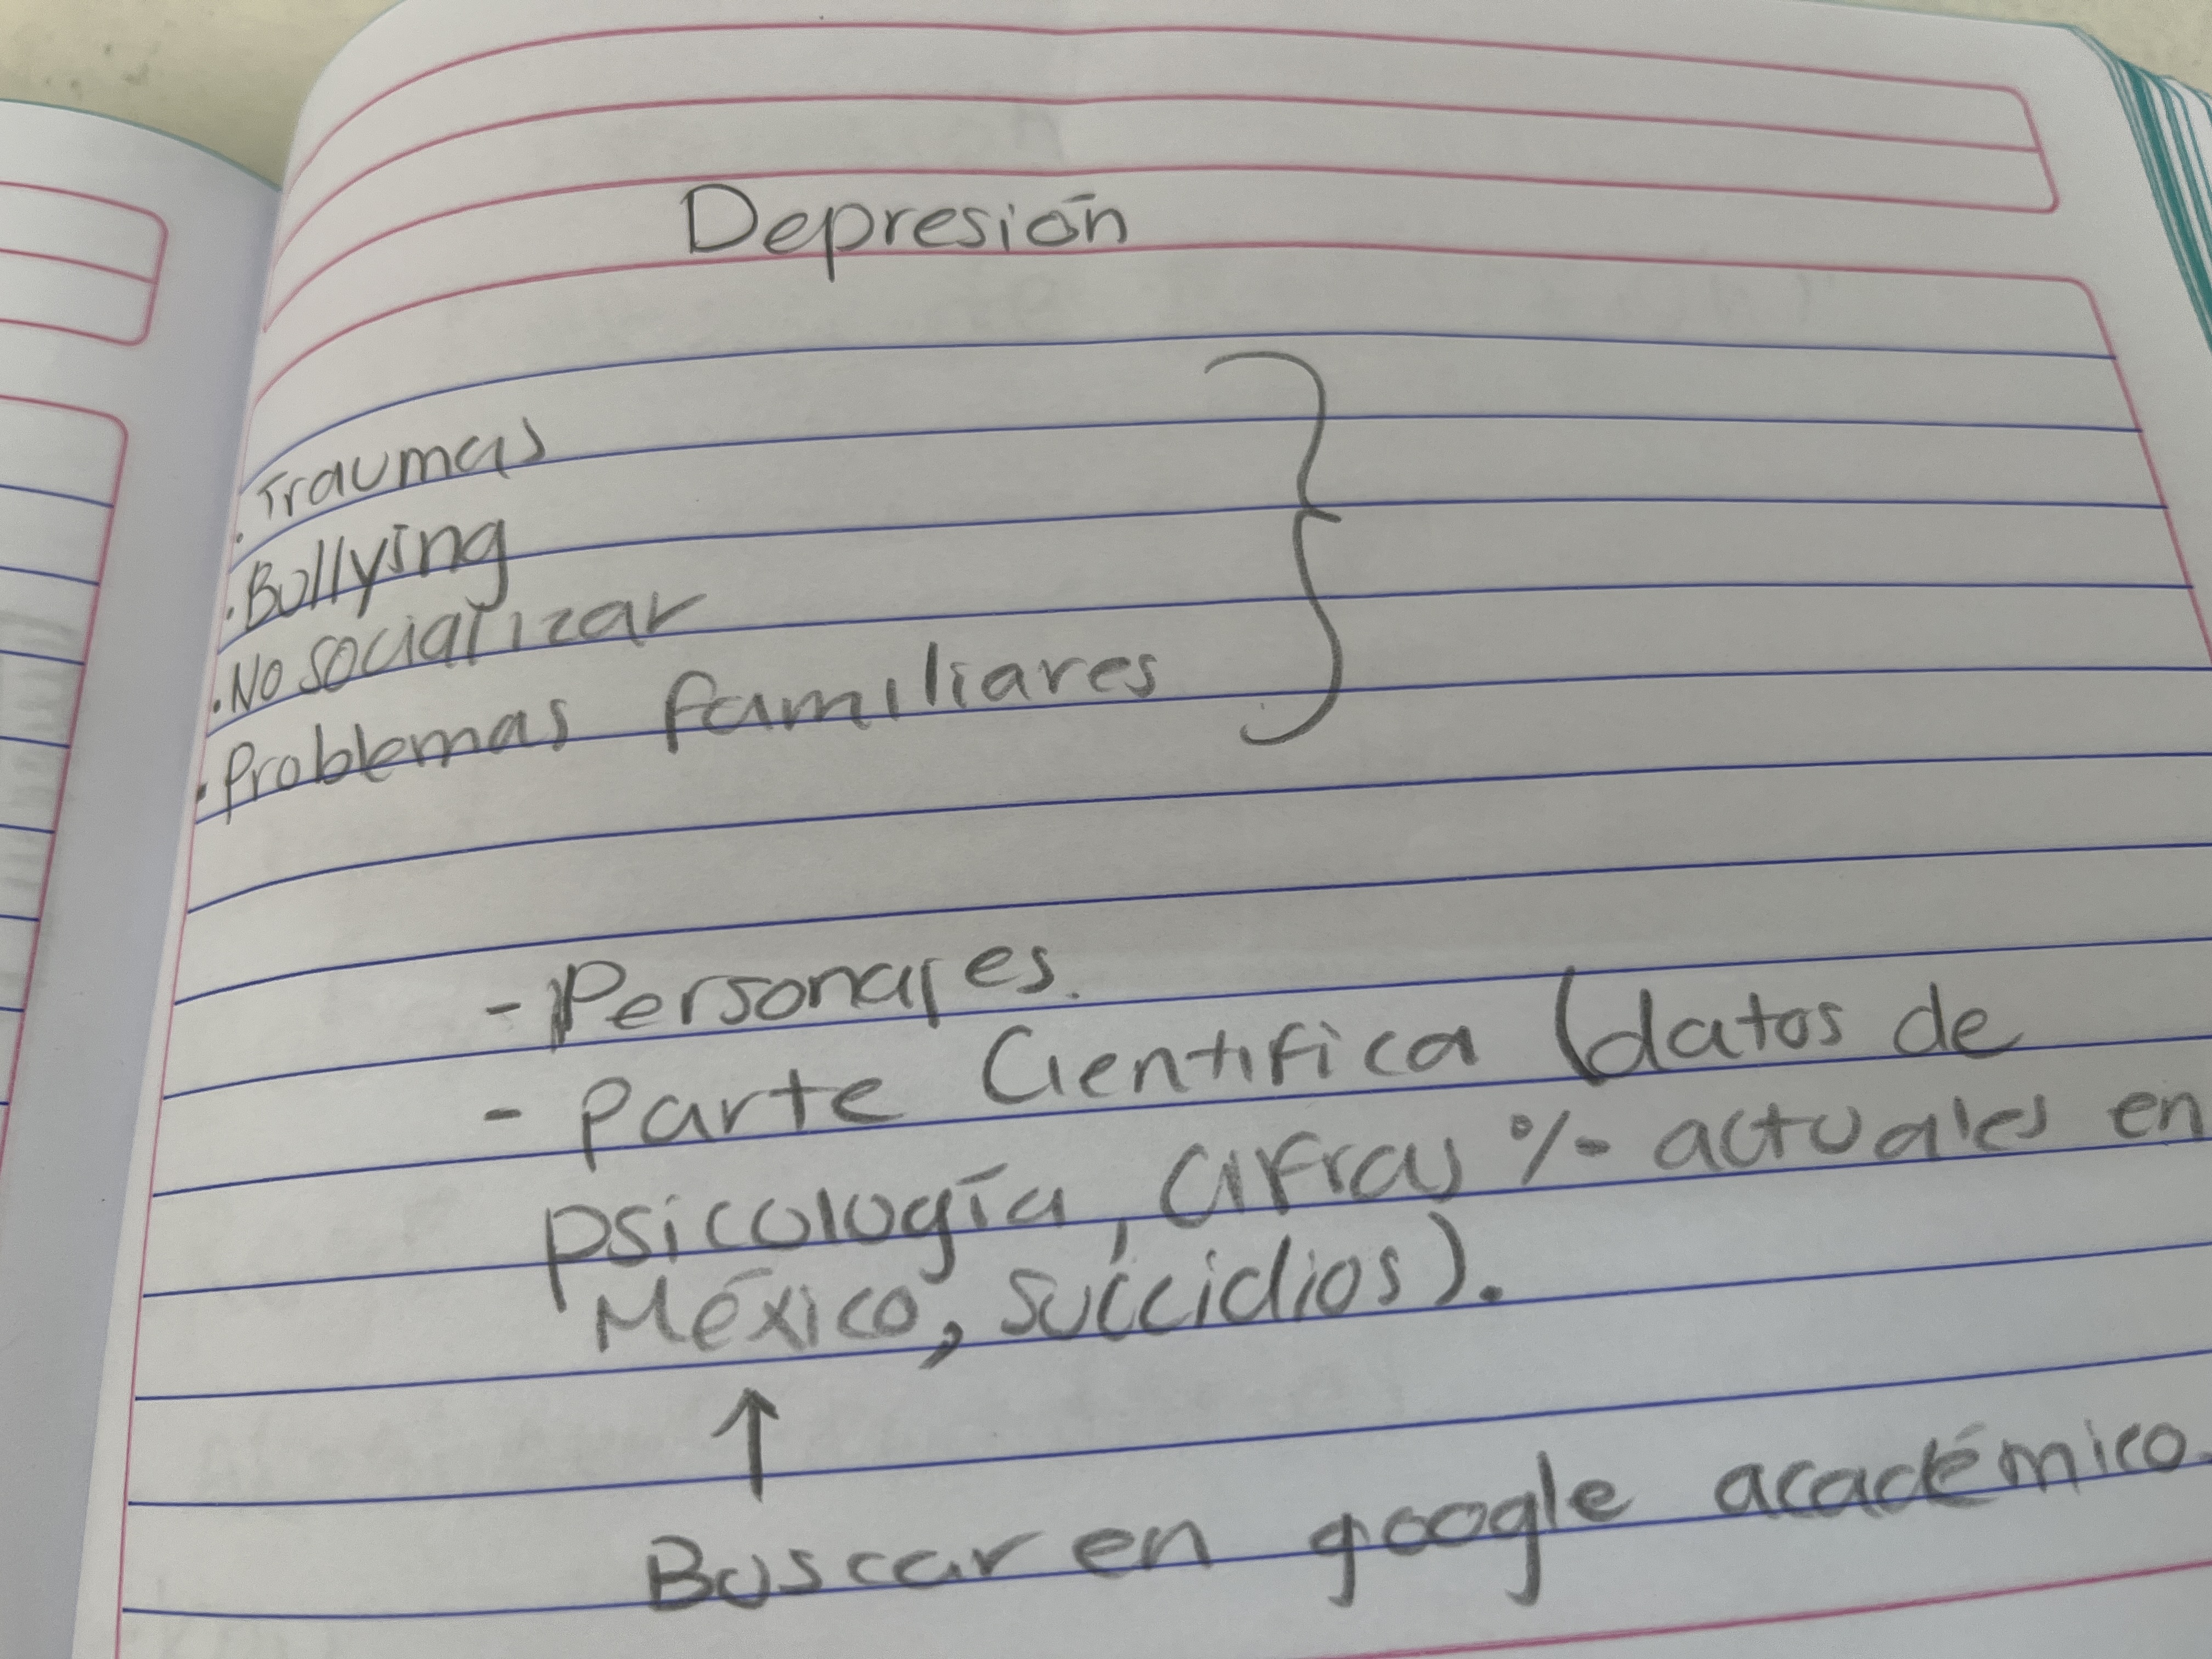 Depresión
. Traumas
. Bullying
. No socializar
. Problemas familiares
- Personales.
- Parte Científica (datos de
psicología, cifras % actuales en
México, suicidios).
↑
Buscar en google académico.